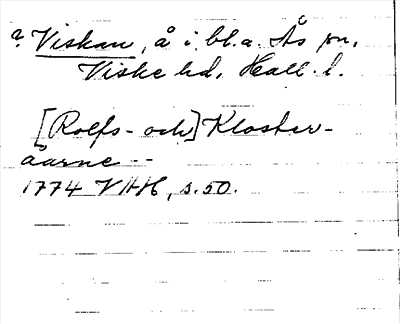 ? Viskan, å i bl.a. Ås sn,
Viske hd, Hall. l.
[Rolfs- och] Kloster-
åarne --
1774 VHH, s. 50.